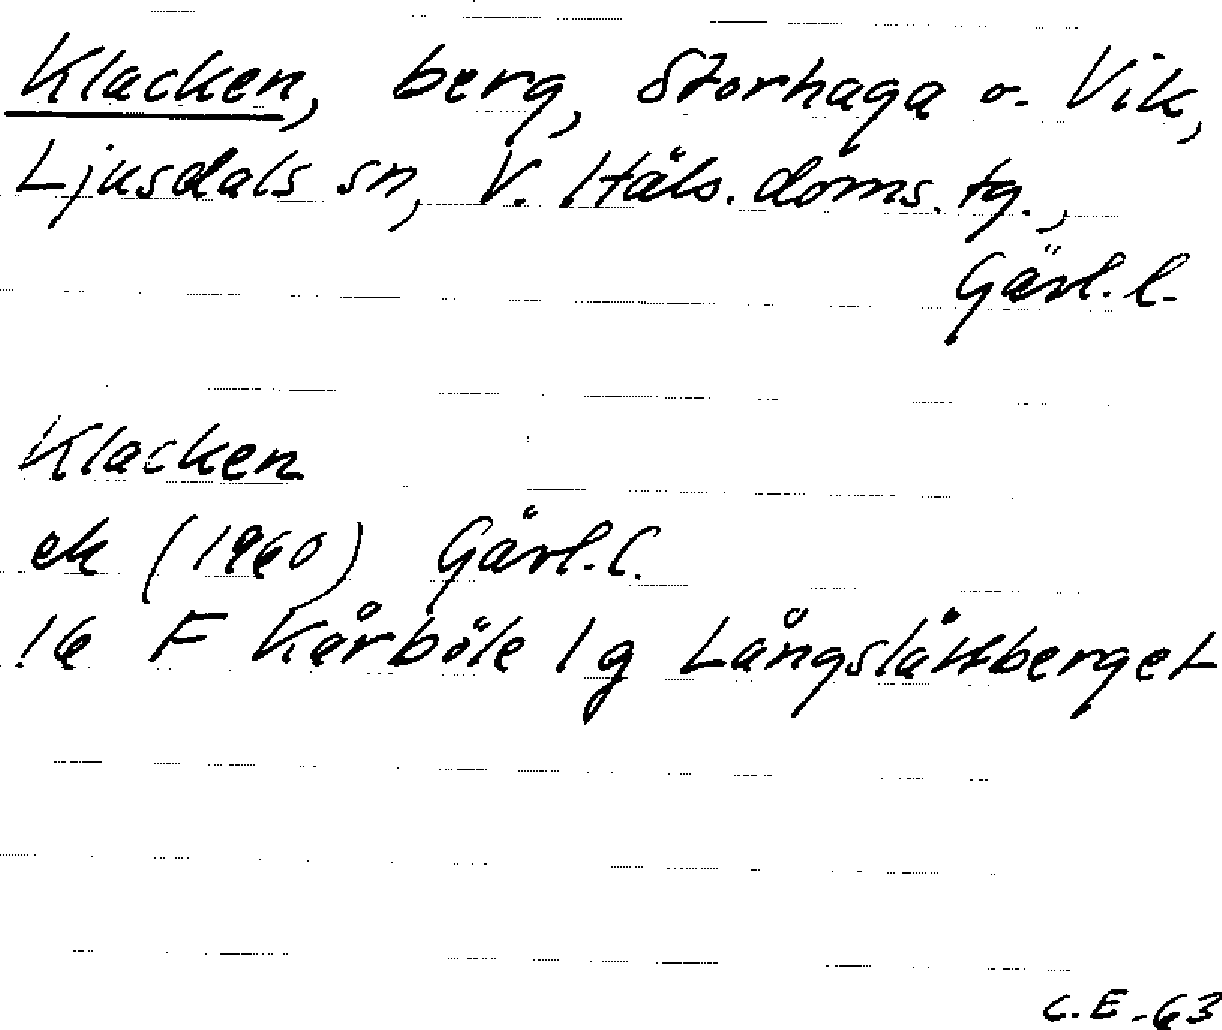 Klacken, berg, Storhaga o. Vik,
Ljusdals sn, V. Häls. doms. tg.,
Gävl. l.
Klacken
ek (1960) Gävl. l.
16 F Kårböle 1 g Långslåttberget
C.E-63